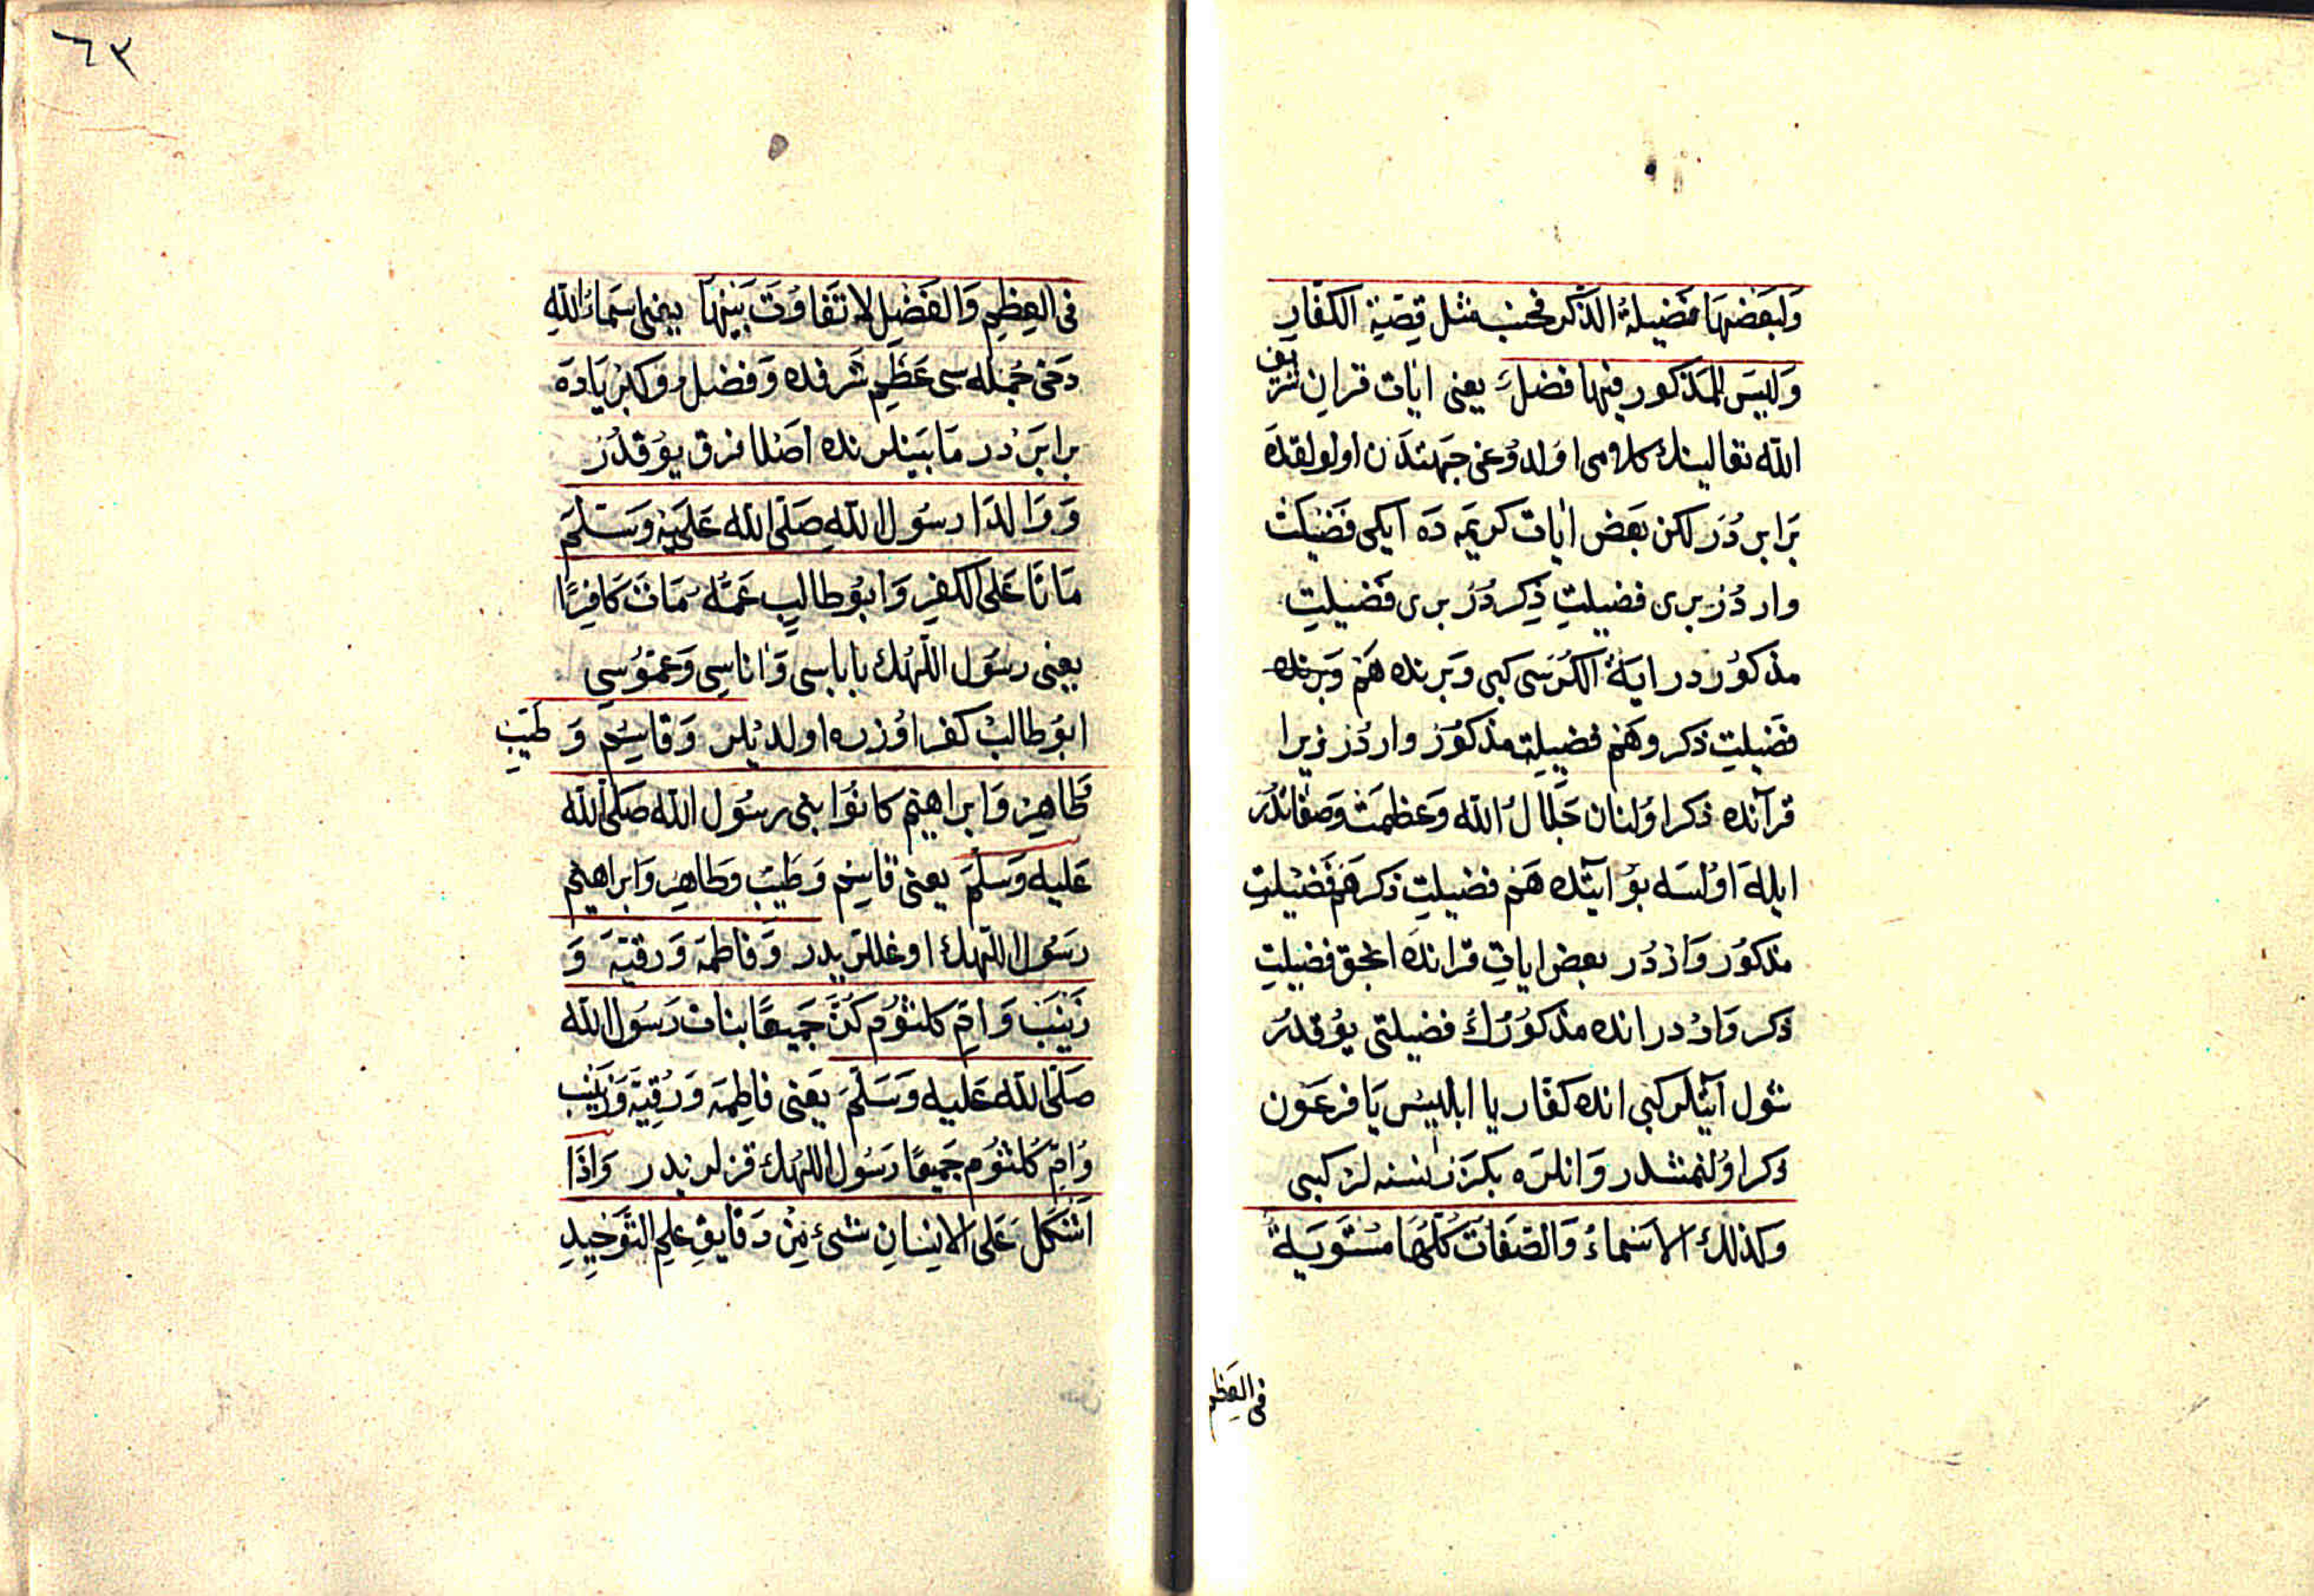 وَلِبَعْضِهَا فَضِيلَةُ الذِّكْرِ فَحَسْبُ مِثْلُ قِصَّةِ الْكُفَّارِ
وَلَيْسَ لِلْمَذْكُورِ فِيهَا فَضْلٌ يعنى ايات قران شريف
الله تعالينك كلامى اولدوغى جهتدن اولولقده
برابردر لكن بعض ايات كريمه ده ايكى فضيلت
واردر برى فضيلت ذكردر برى فضيلت
مذكوردر اية الكرسى كبى وبرنده هم وبرنده
فضيلت ذكر وهم فضيلت مذكور واردر زيرا
قرآنده ذكر اولنان جلال الله وعظمت وصفاتدر
ايله اولسه بو آيتده هم فضيلت ذكر هم فضيلت
مذكور واردر بعض ايات قرانده انجق فضيلت
ذكر واردر انده مذكورك فضيلتى يوقدر
شول آيتلر كبى انده كفار يا ابليس يا فرعون
ذكر اولنمشدر وانلره بكزر نسنه لر كبى
وَكَذَلِكَ الْاَسْمَاءُ وَالصِّفَاتُ كُلُّهَا مُسْتَوِيَةٌ
فى العظم
٦٣
فِى الْعِظَمِ وَالْفَضْلِ لَا تَفَاوُتَ بَيْنَهَا يعنى اسماء الله
دخى جمله سى عظم شرفده وفضل وكبريا ده
برابردر مابينلرنده اصلا فرق يوقدر
وَوَالِدَا رَسُولِ اللهِ صَلَّى اللهُ عَلَيْهِ وَسَلَّمَ
مَاتَا عَلَى الْكُفْرِ وَابُو طَالِبٍ عَمُّهُ مَاتَ كَافِرًا
يعنى رسول اللهك باباسى واناسى وعموسى
ابو طالب كفر اوزره اولديلر وَقَاسِم وَ طَيِّب
طَاهِر وَابراهيم كانُوا بنى رسُول الله صَلَّى الله
عَليه وَسَلَّمَ يعنى قاسم وطيب وطاهر وابراهيم
رسول اللهك اوغللريدر وَفَاطِمَة وَرقيّة وَ
زَيْنَب وَاُمّ كلثوُم كُنَّ جَميعًا بنات رَسُول الله
صَلَّى الله عَليه وَسَلَّمَ يعنى فاطمة ورقية وزينب
وام كلثوم جميعا رسول اللهك قزلريدر وَاِذَا
اَشْكَلَ عَلَى الْاِنْسَانِ شَىْءٌ مِنْ دَقَايِقِ عِلْمِ التَّوْحِيدِ